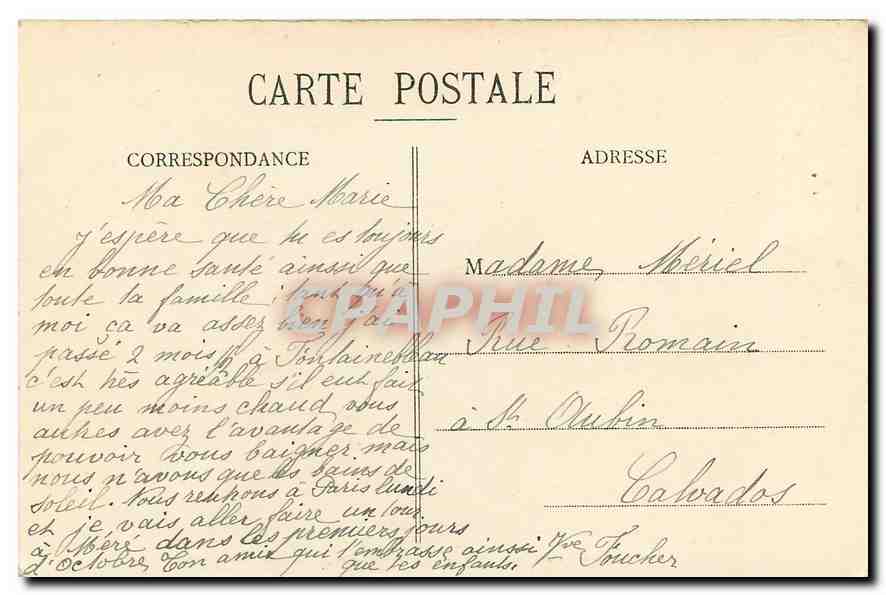 CARTE POSTALE
CORRESPONDANCE
Ma Chère Marie
j'espère que tu es toujours
en bonne santé ainssi que
toute ta famille; tant qu'à
moi ça va assez bien j'ai
passé 2 mois ½ à Fontainebleau
c'est très agréable s'il eut fait
un peu moins chaud vous
autres avez l'avantage de
pouvoir vous baigner mais
nous n'avons que les bains de
soleil. Nous rentrons à Paris lundi
et je vais aller faire un tour
à Méré dans les premiers jours
d'octobre, Ton amie qui t'embrasse ainssi
que tes enfants.
Vve Foucher
ADRESSE
Madame Mériel
Rue Romain
à St Aubin
Calvados
CPAPHIL